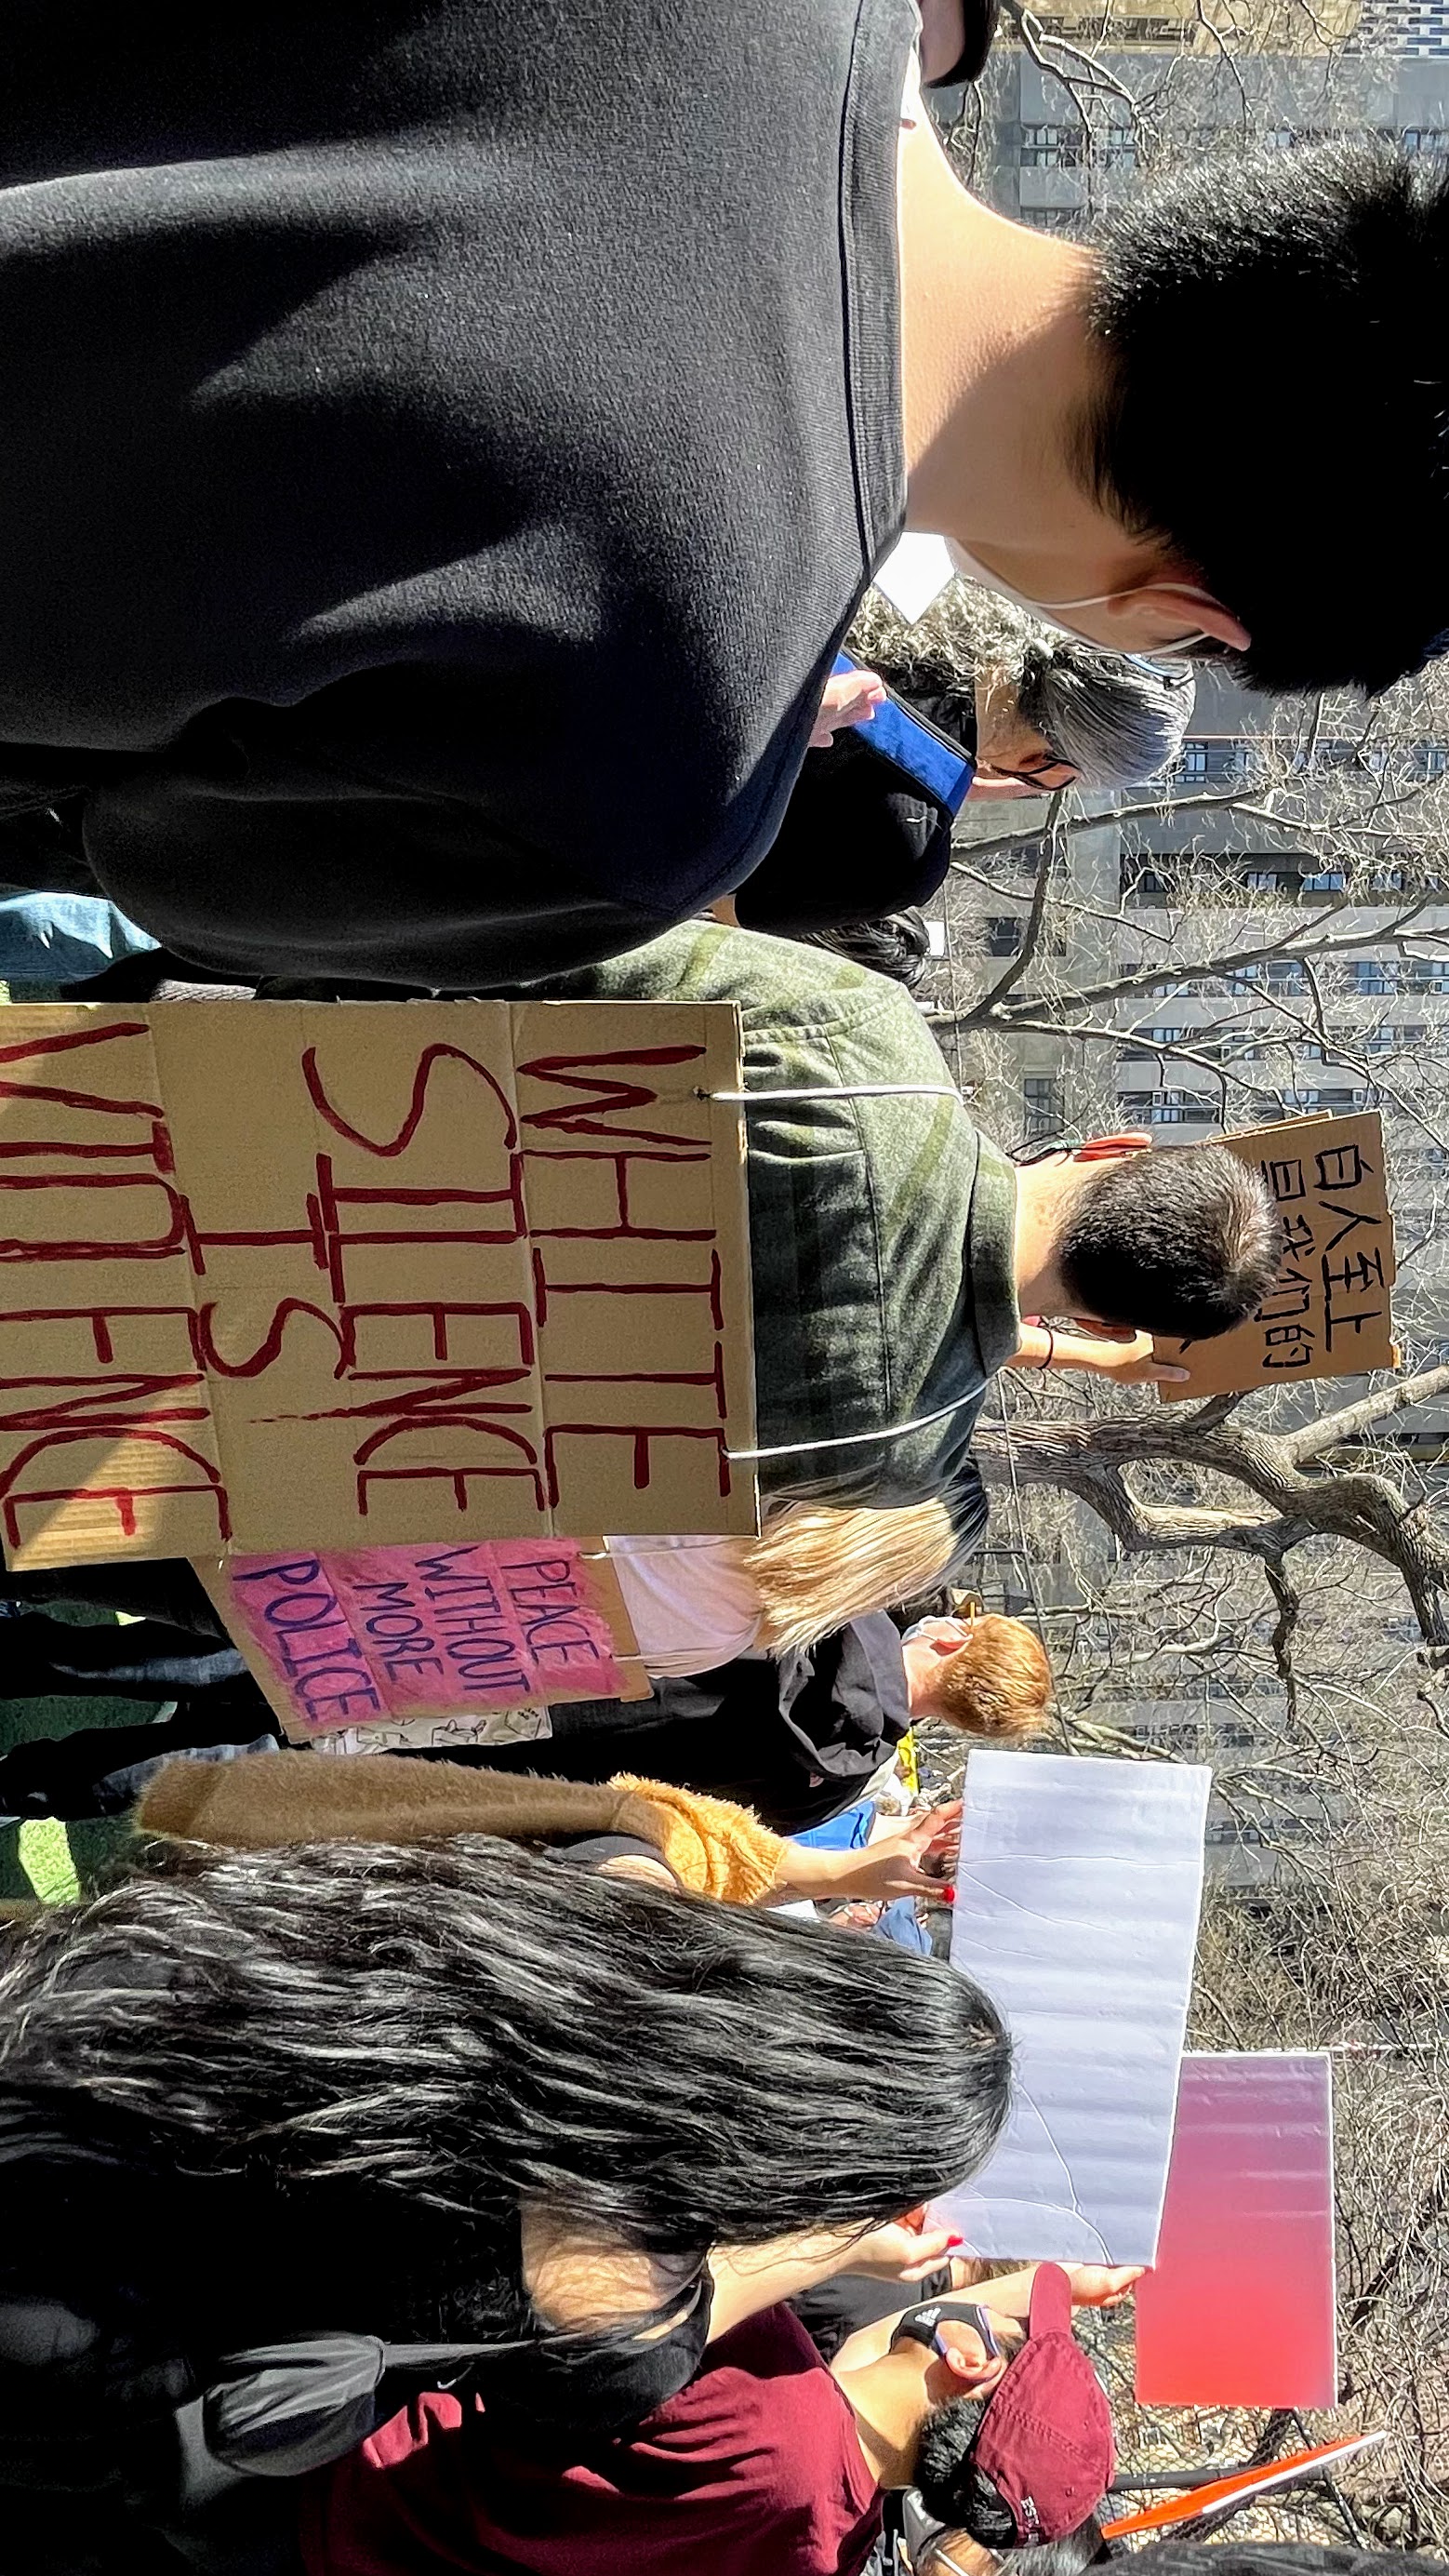 白人至上
是我们的
WHITE
SILENCE
IS
VIOLENCE
PEACE
WITHOUT
MORE
POLICE